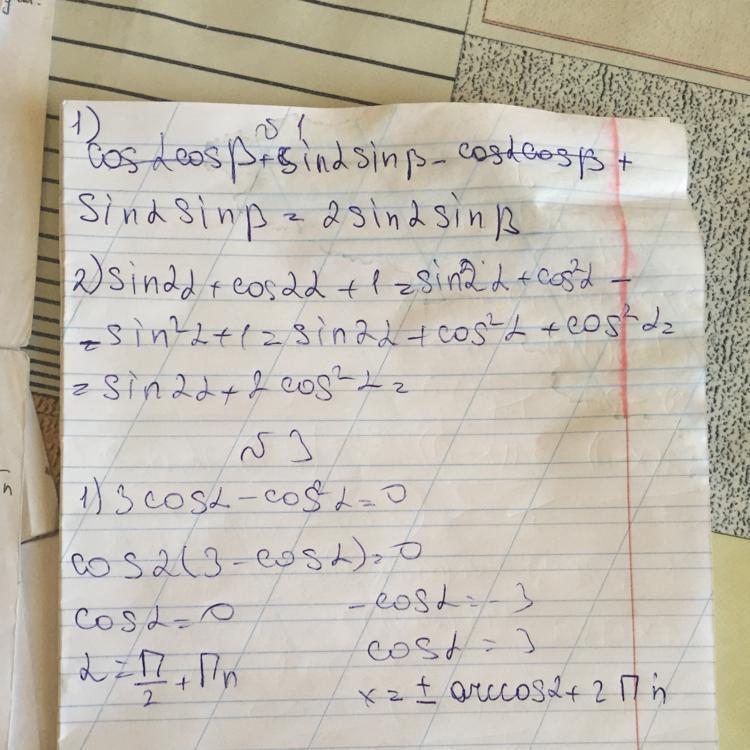 1)
№ 1
cosαcosβ + sinαsinβ - cosαcosβ +
sinαsinβ = 2sinαsinβ
2) sin2α + cos2α + 1 = sin2α + cos²α -
- sin²α + 1 = sin2α + cos²α + cos²α =
= sin2α + 2cos²α =
№ 3
1) 3cosα - cos²α = 0
cosα(3 - cosα) = 0
cosα = 0 -cosα = -3
cosα = 3
α = П/2 + Пn x = ± arccosα + 2Пn
n